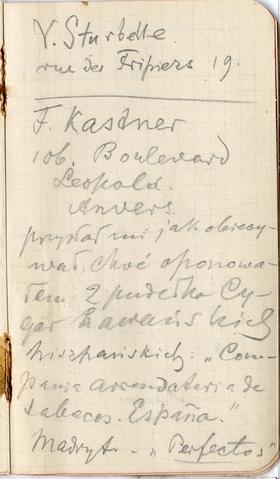 V. Sturbelle
rue des Fripiers 19.
F. Kastner
106. Boulevard
Leopold.
Anvers
przysłał mi jak obiecy-
wał, choć oponowa-
łem 2 pudełka Cy-
gar hawańskich
hiszpańskich: „Com-
pania arrendataria de
tabacos. España."
Madryt. - „Perfectos"